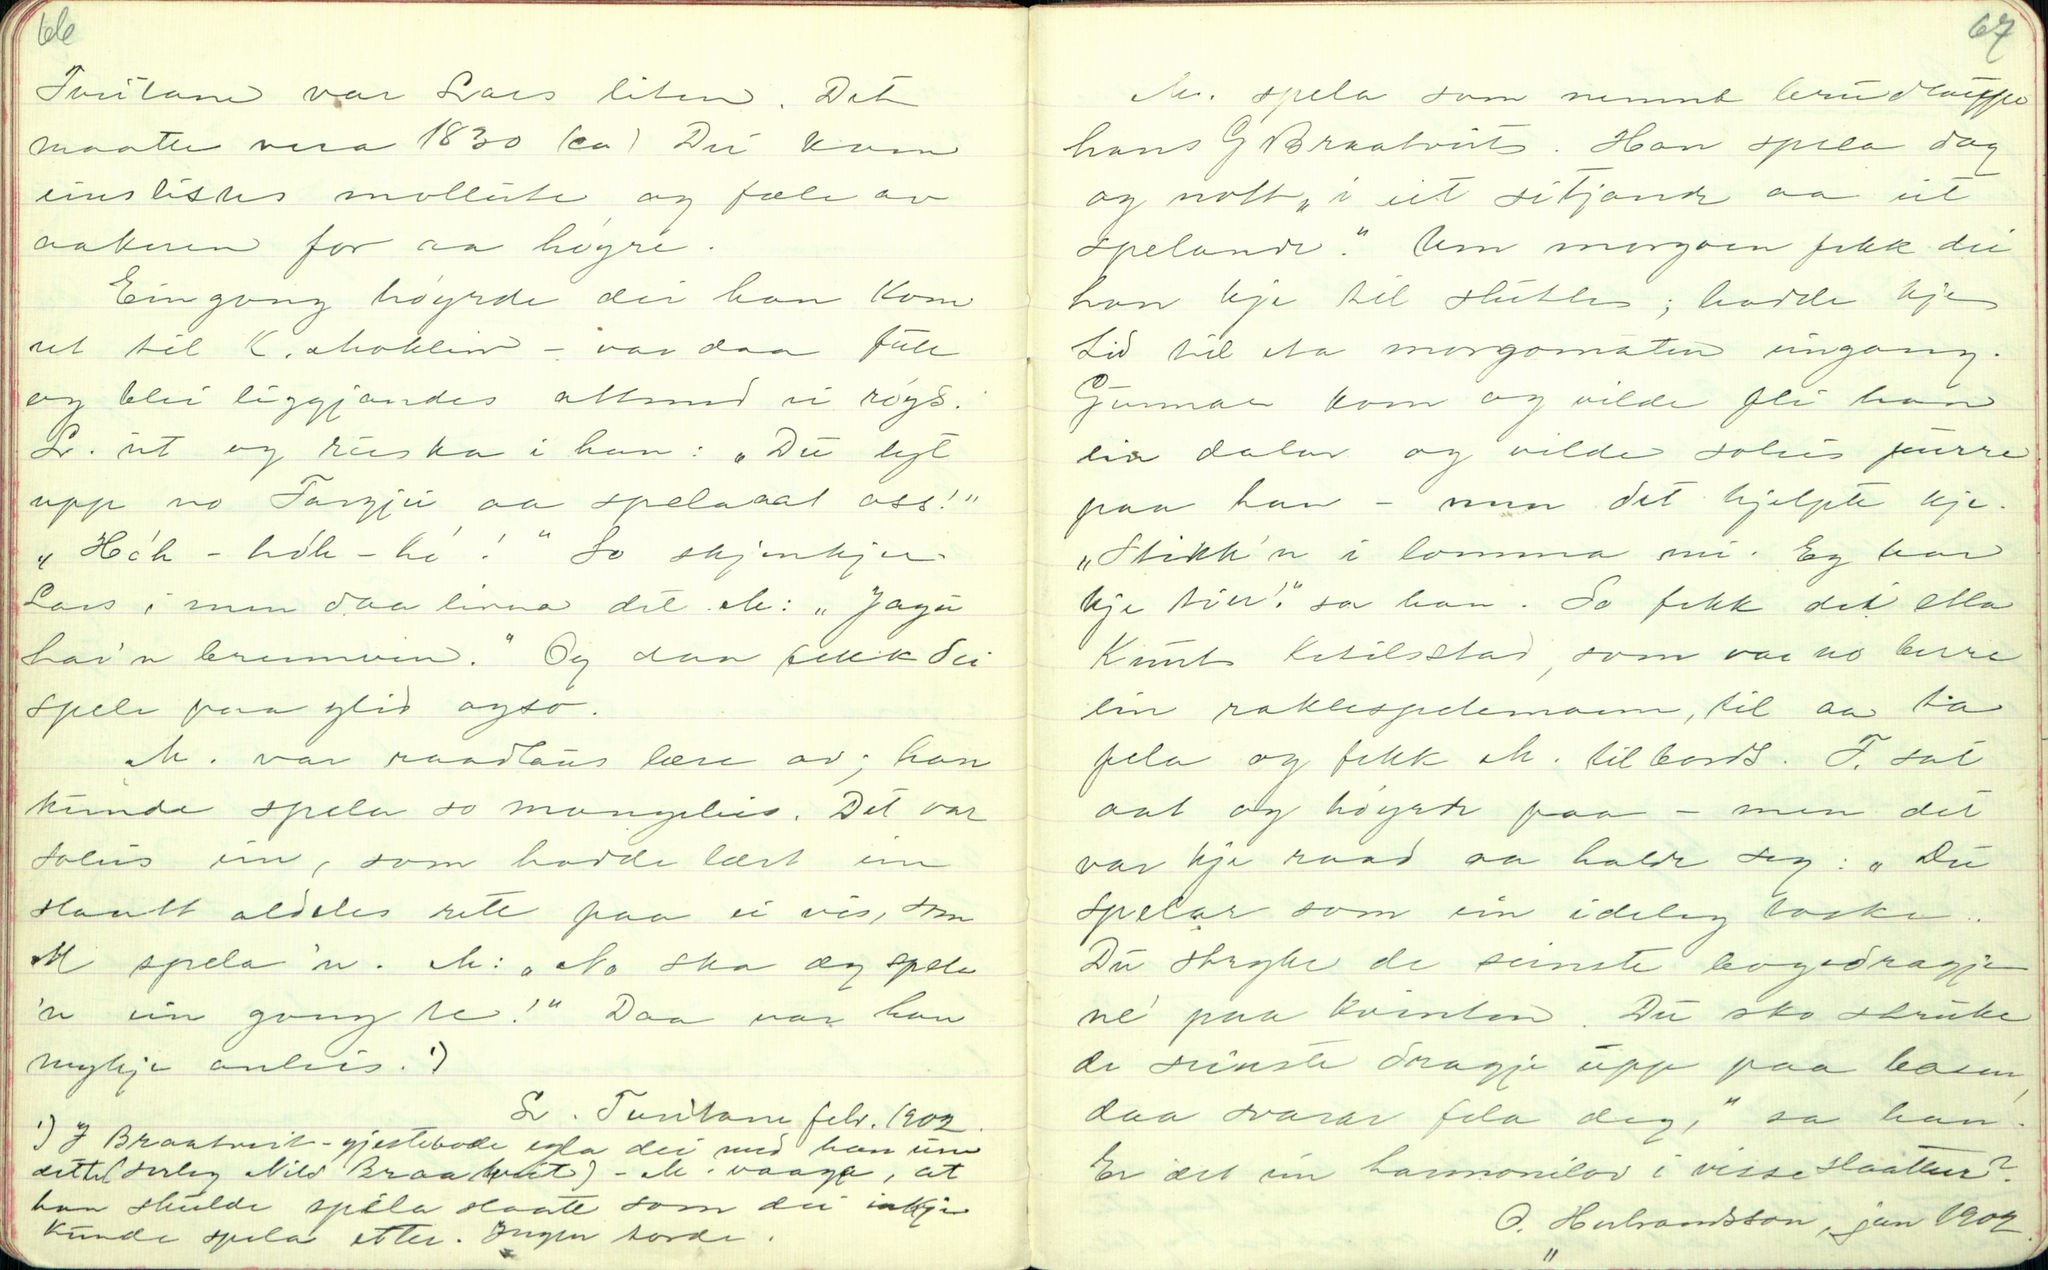 66
Tveitane var Lars liten. Det
maatte vera 1830 (ca) Dei kom
einslistes mollute og fæle av
aakeren for aa høgre.
Ein gong høyrde dei han kom
ut til K. Moklein - var daa full
og blei liggjandes attmed ei røys.
L. ut og ruska i han: "Du lyt
upp no Targjei aa spela aat oss!"
"Hók - hók - hé!" So skjenkjer
Lars i men daa livna det M: "Jagu
har'n brennevin." Og daa fekk dei
spele paa glid ogso.
M. var raadlaus lære av; han
kunde spela so mangeleis. Det var
soleis ein, som hadde lært ein
slaatt aldeles rett paa ei vis, som
M spela 'n. M: "No ska æg spela
'n ein gong te!" Daa var han
mykje anleis. 1)
L. Tveitane febr. 1902.
1) I Braatveit-gjestebode egla dei med han um
dette (serleg Nils Braatveit) - M. vaaga, at
han skulde spela slaatte som dei inkje
kunde spela etter. Ingen torde.
67
M. spela som nemnt brudlaupe
hans G Braatveit. Han spela dag
og nott "i eit sitjande aa eit
spelande." Um morgoen fekk dei
han kje til slutte; hadde kje
tid til eta morgomaten eingong.
Gunnar kom og vilde fli han
ein dalar og vilde soleis purre
paa han - men det hjelpte kje.
"Stikk'n i lomma mi. Eg har
kje tier!" sa han. So fekk dei etla
Knut Ketilsstad, som var no berre
ein raklespelemann, til aa ta
fela og fekk M. tilbords. T. sat
aat og høyrde paa - men det
var kje raad aa halde seg: "Du
spelar som ein ideleg taske.
Du stryke de seinste bogedragje
né paa kvinten. Du ska struke
de seinste dragje upp paa basen,
daa svarar fela deg," sa han.
Er det ein harmonilov i visse slaatter?
O. Herbrandsson, jan 1902.
"